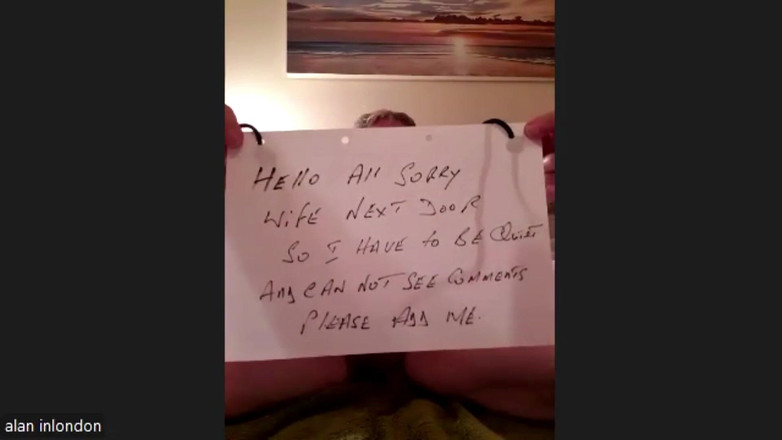 HEllO All SORRY
WiFE NEXT DOOR
SO I HAVE to BE QUiET
AND CAN NOT SEE COMMENTS
PlEASE ADD ME.
alan inlondon